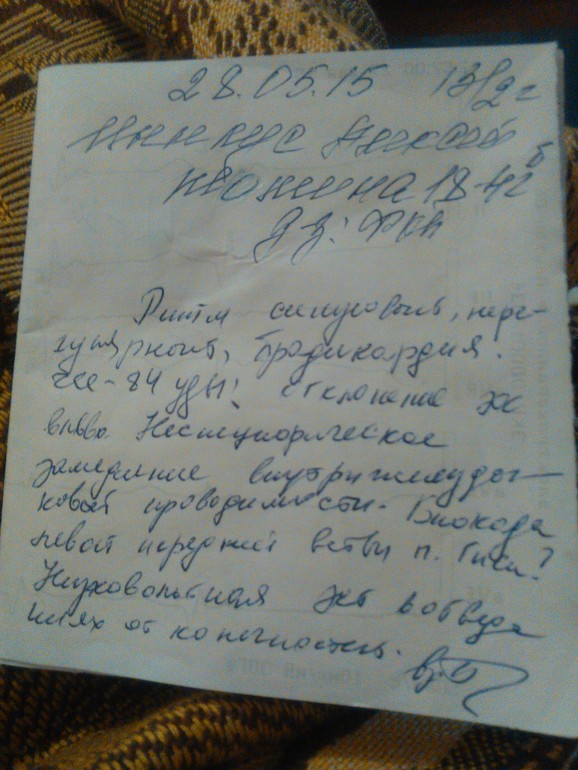 28.05.15 13/2 г
18-412
Дз: ФКН
Ритм синусовый, нере-
гулярный, брадикардия.
ЧСС - 84 уд/1' отклонение ЭОС
влево. Неспецифическое
замедление внутрижелудоч-
ковой проводимости. Блокада
левой передней ветви п. Гиса?
Низковольтная ЭКГ в отведе
ниях от конечностей.